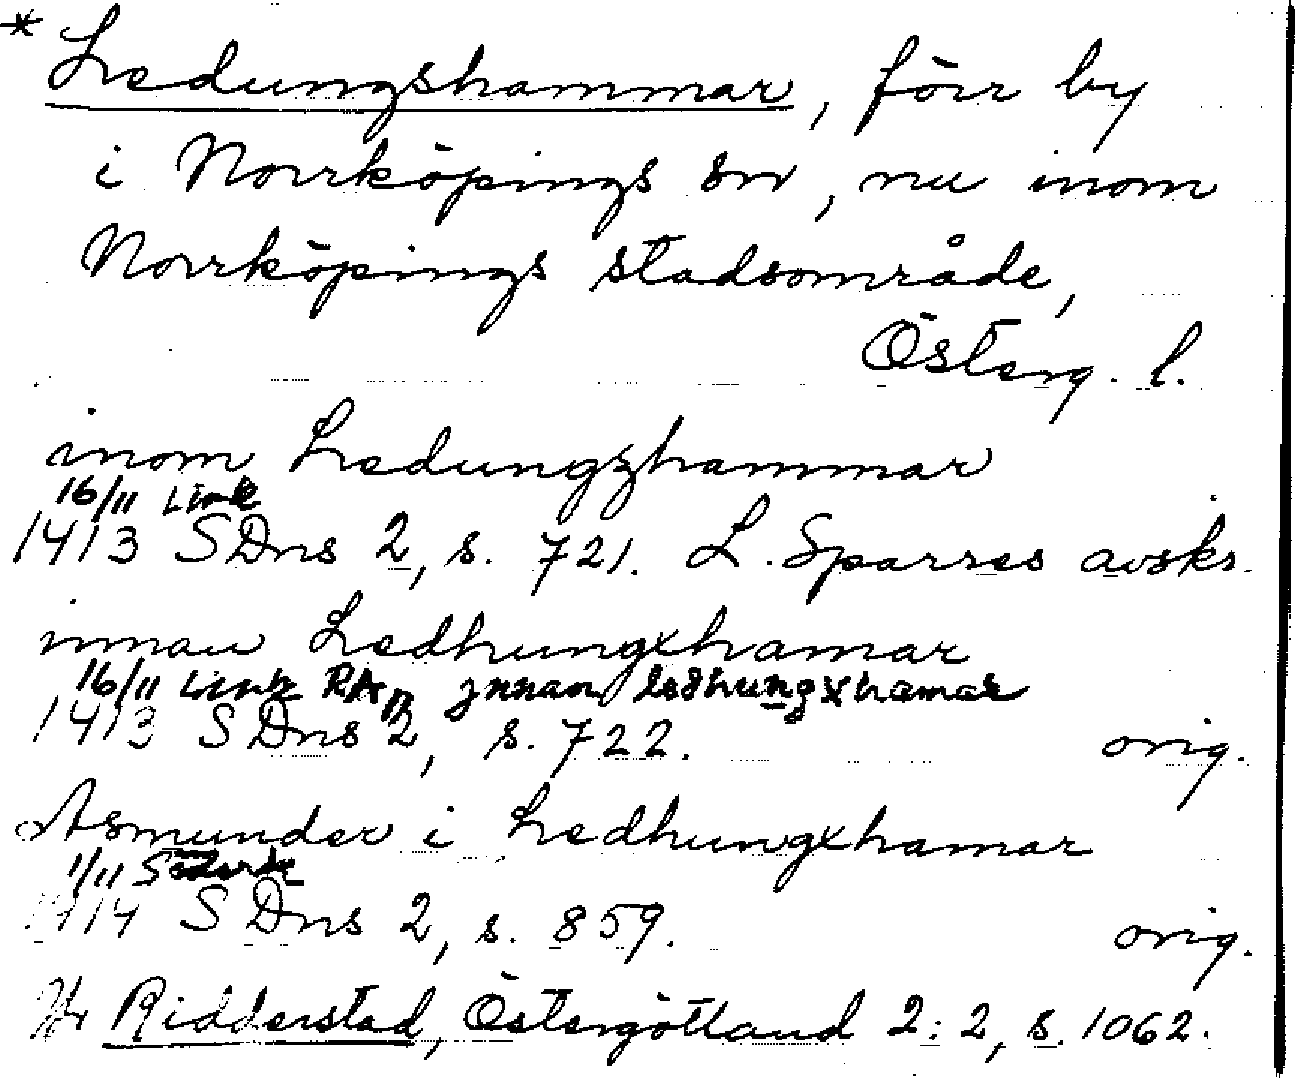 * Ledungshammar, förr by
i Norrköpings sn, nu inom
Norrköpings stadsområde,
Österg. l.
inom Ledungzhammar
16/11 Link
1413 SDns 2, s. 721. L. Sparres avskr.
innan Ledhungxhamar
16/11 Link RAp jnnan ledhungxhamar
1413 SDns 2, s. 722. orig.
Asmunder i Ledhungxhamar
1/11
1414 SDns 2, s. 859. orig.
Jfr Ridderstad, Östergötland 2:2, s. 1062.